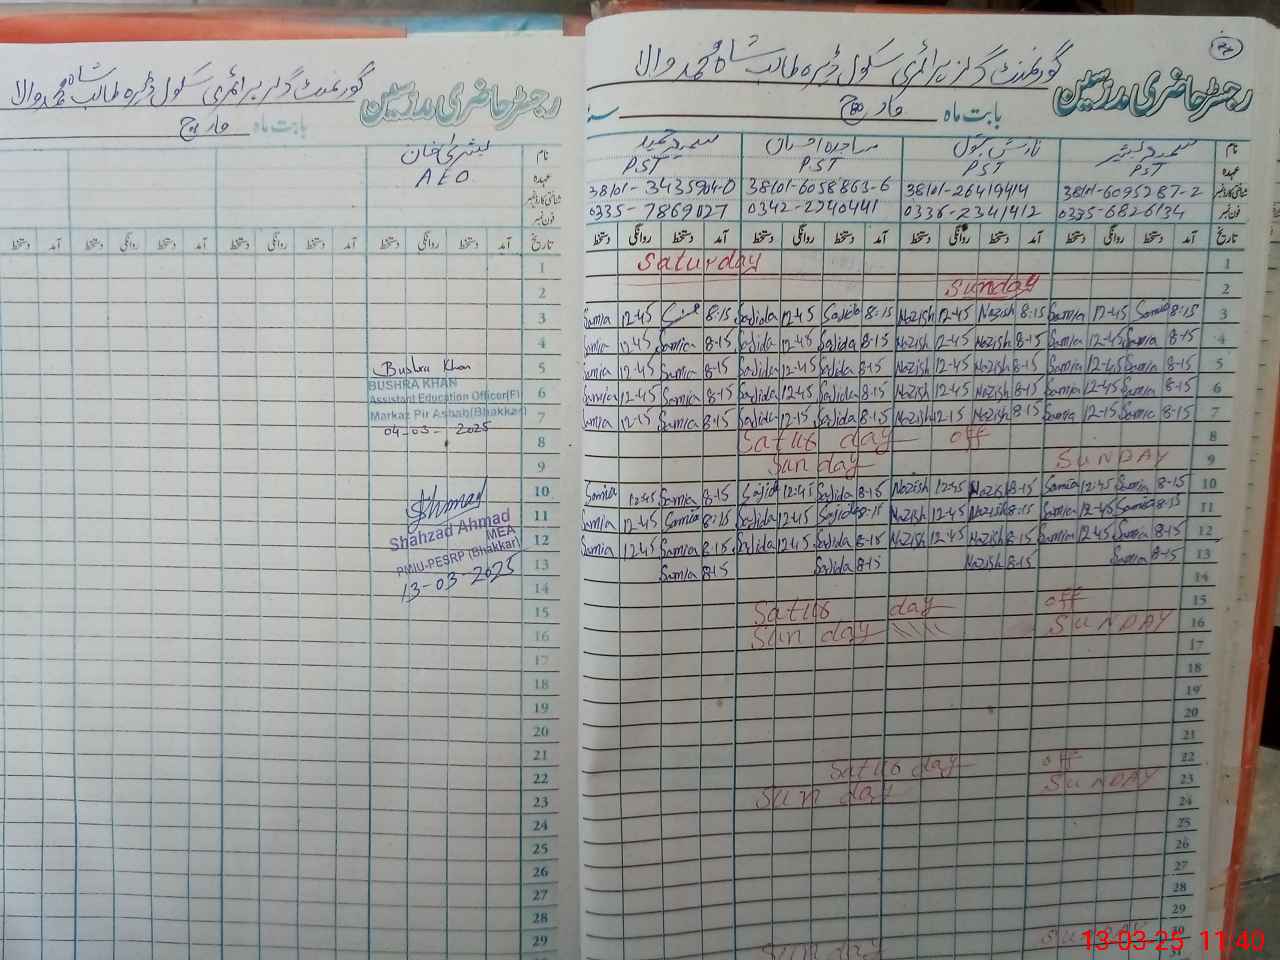 گورنمنٹ گرلز پرائمری سکول ڈیرہ طالب شاہ محمد والا
رجسٹر حاضری مدرسین
بابت ماہ مارچ
بشریٰ خان
AEO
نام
عہدہ
شناختی کارڈ نمبر
فون نمبر
تاریخ آمد دستخط روانگی دستخط آمد دستخط روانگی دستخط آمد دستخط روانگی دستخط آمد
1
2
3
4
5
Bushra Khan
BUSHRA KHAN
Assistant Education Officer(F)
6
Markaz Pir Ashab(Bhakkar)
7
04-03-2025
8
9
10
Ahmad
11
Shahzad Ahmad
MEA
12
PMIU-PESRP (Bhakkar)
13
13-03-2025
14
15
16
17
18
19
20
21
22
23
24
25
26
27
28
29
گورنمنٹ گرلز پرائمری سکول ڈیرہ طالب شاہ محمد والا
رجسٹر حاضری مدرسین
بابت ماہ مارچ
نام
عہدہ PST PST PST PST
شناختی کارڈ نمبر 38101-6095287-2 38101-2641941 38101-6058863-6 38101-3435904-0
فون نمبر 0335-6826134 0336-2341412 0342-2240441 0335-7869027
تاریخ آمد دستخط روانگی دستخط آمد دستخط روانگی دستخط آمد دستخط روانگی دستخط آمد دستخط روانگی دستخط
Saturday 1
Sunday 2
Samia 12-45 8:15 Sajida 12-45 Sajida 8:15 Nazish 12-45 Nazish 8-15 Samia 12-45 Samia 8:15 3
Samia 12-45 Samia 8-15 Sajida 12-45 Sajida 8-15 Nazish 12-45 Nazish 8-15 Samia 12-45 Samia 8-15 4
Samia 12-45 Samia 8-15 Sajida 12-45 Sajida 8-15 Nazish 12-45 Nazish 8-15 Samia 12-45 Samia 8-15 5
Samia 12-45 Samia 8-15 Sajida 12-45 Sajida 8-15 Nazish 12-45 Nazish 8-15 Samia 12-45 Samia 8-15 6
Samia 12-15 Samia 8-15 Sajida 12-15 Sajida 8-15 Nazish 12-15 Nazish 8-15 Samia 12-15 Samia 8-15 7
Satur day off 8
Sun day SUNDAY 9
Samia 12-45 Samia 8-15 Sajida 12-45 Sajida 8-15 Nazish 12-45 Nazish 8-15 Samia 12-45 Samia 8-15 10
Samia 12-45 Samia 8:15 Sajida 12-45 Sajida 8-15 Nazish 12-45 Nazish 8-15 Samia 12-45 Samia 8-15 11
Samia 12-45 Samia 8-15 Sajida 12-45 Sajida 8-15 Nazish 12-45 Nazish 8-15 Samia 12-45 Samia 8-15 12
Samia 8-15 Sajida 8-15 Nazish 8-15 Samia 8-15 13
14
Satur day off 15
Sun day SUNDAY 16
17
18
19
20
21
Satur day off 22
Sun day SUNDAY 23
24
25
26
27
28
29
Sun day
13-03-25 11:40